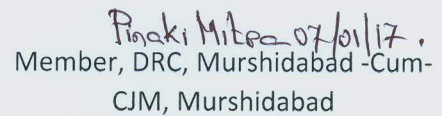 Pinaki Mitra 07/01/17.
Member, DRC, Murshidabad -Cum-
CJM, Murshidabad